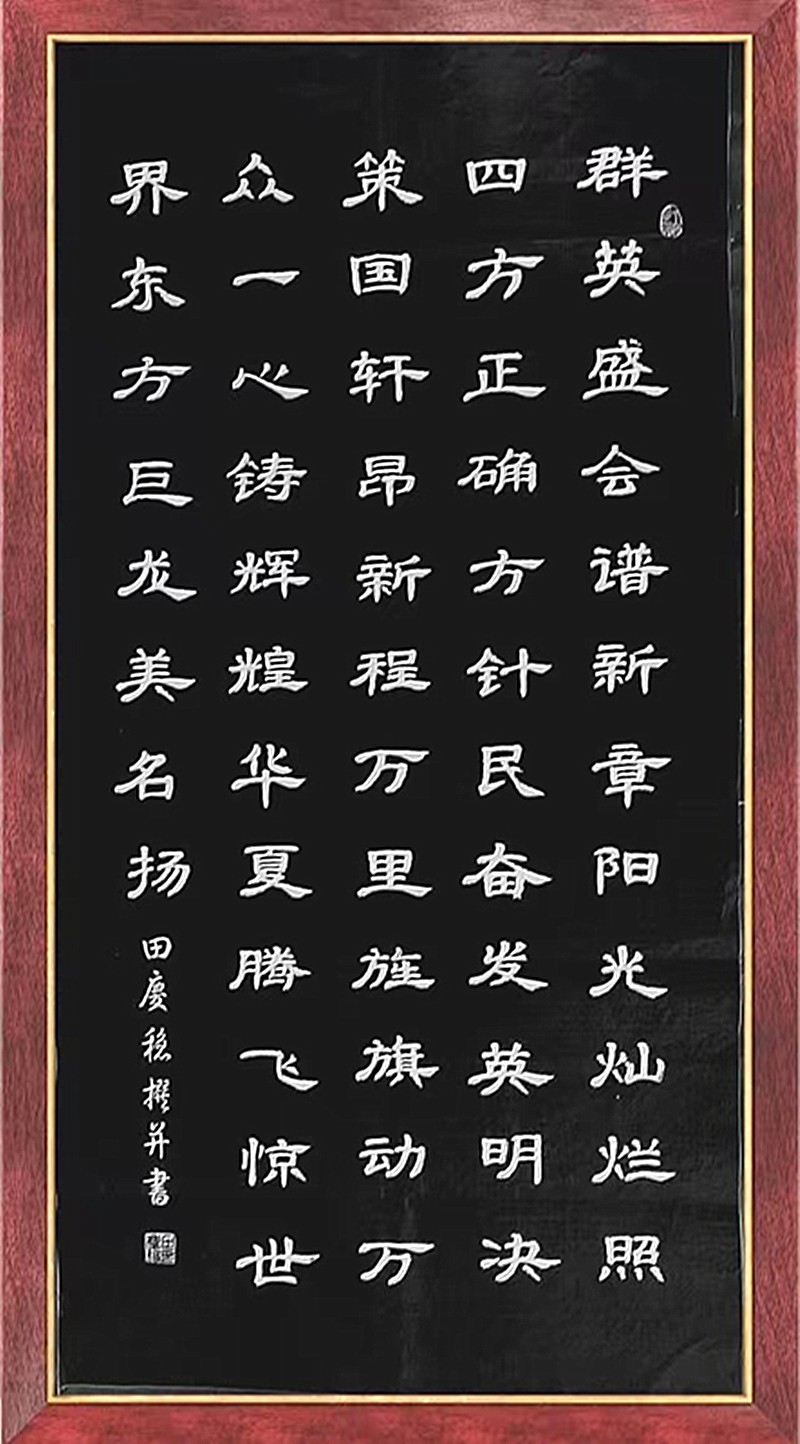 群英盛会谱新章阳光灿烂照
四方正确方针民奋发英明决
策国轩昂新程万里旌旗动万
众一心铸辉煌华夏腾飞惊世
界东方巨龙美名扬
田慶稳撰并書